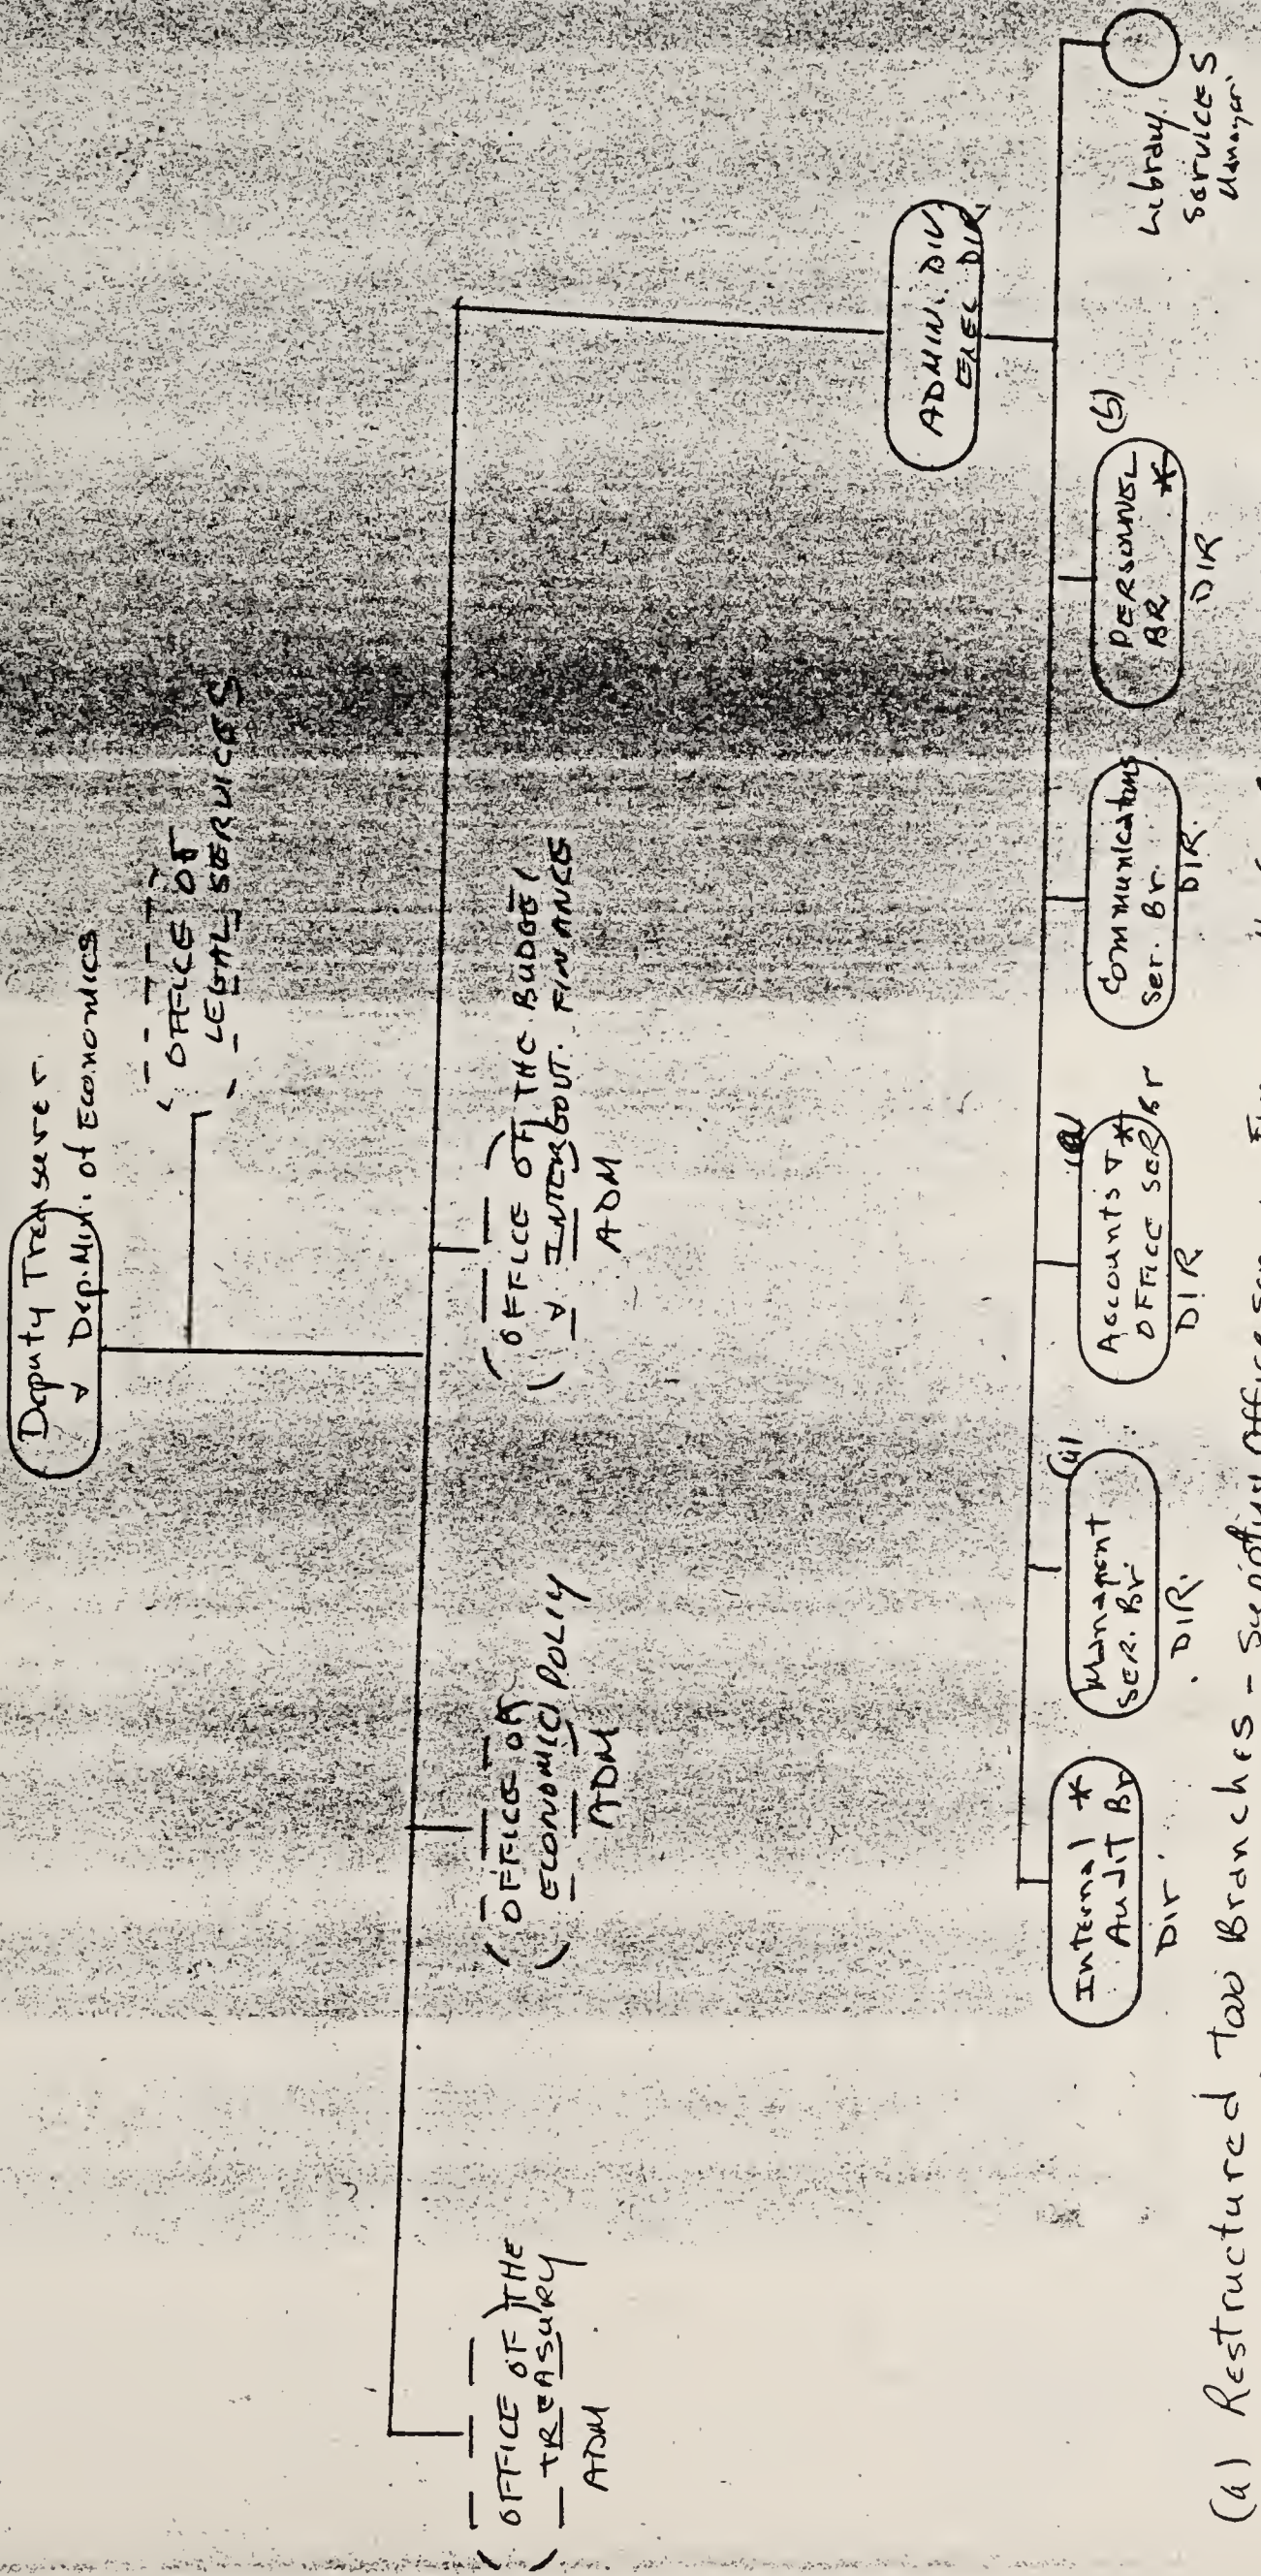 Deputy Treasurer
& Dep. Min. of Economics
OFFICE OF
LEGAL SERVICES
(OFFICE OF THE
TREASURY
ADM
(OFFICE OF
ECONOMIC POLICY
ADM
(OFFICE OF THE BUDGET
& INTERGOVT. FINANCE
ADM
ADMIN. DIV.
EXEC DIR.
Internal *
Audit Br
Dir.
(a)
Management
SER. Br.
DIR.
(a)
Accounts & *
OFFICE SER Br
DIR
Communications
Ser. Br.
DIR.
(b)
PERSONNEL
BR *
DIR
Library
SERVICES
Manager.
(a) Restructured two Branches - Office